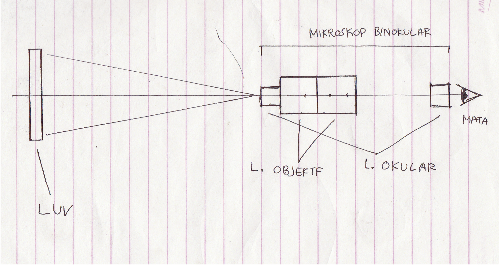 MIKROSKOP BINOKULAR
MATA
L. OBJEKTF
L. OKULAR
LUV